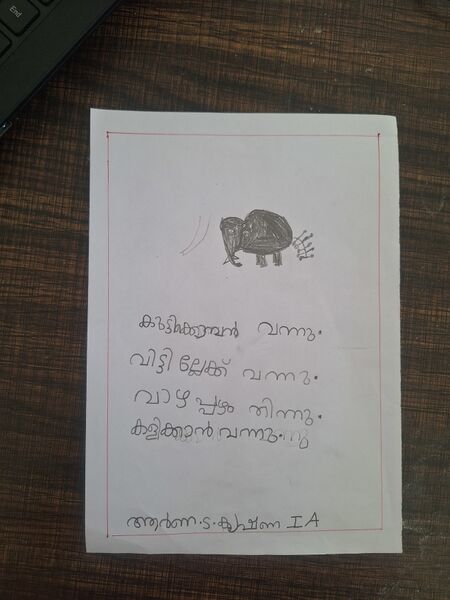 End
കുട്ടിക്കൊമ്പൻ വന്നു.
വിട്ടി ല്ലേക്ക് വന്നു.
വാഴ പ്പഴം തിന്നു.
കളിക്കാൻ വന്നു.
ആർണ.ട.കൃഷ്ണ I A